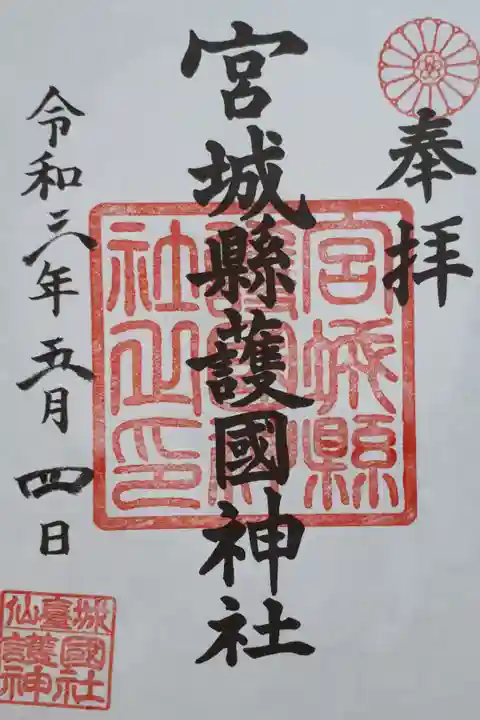 奉拝
宮城縣護國神社
令和三年五月四日
宮城縣
護國神
社之印
仙臺城
護國
神社